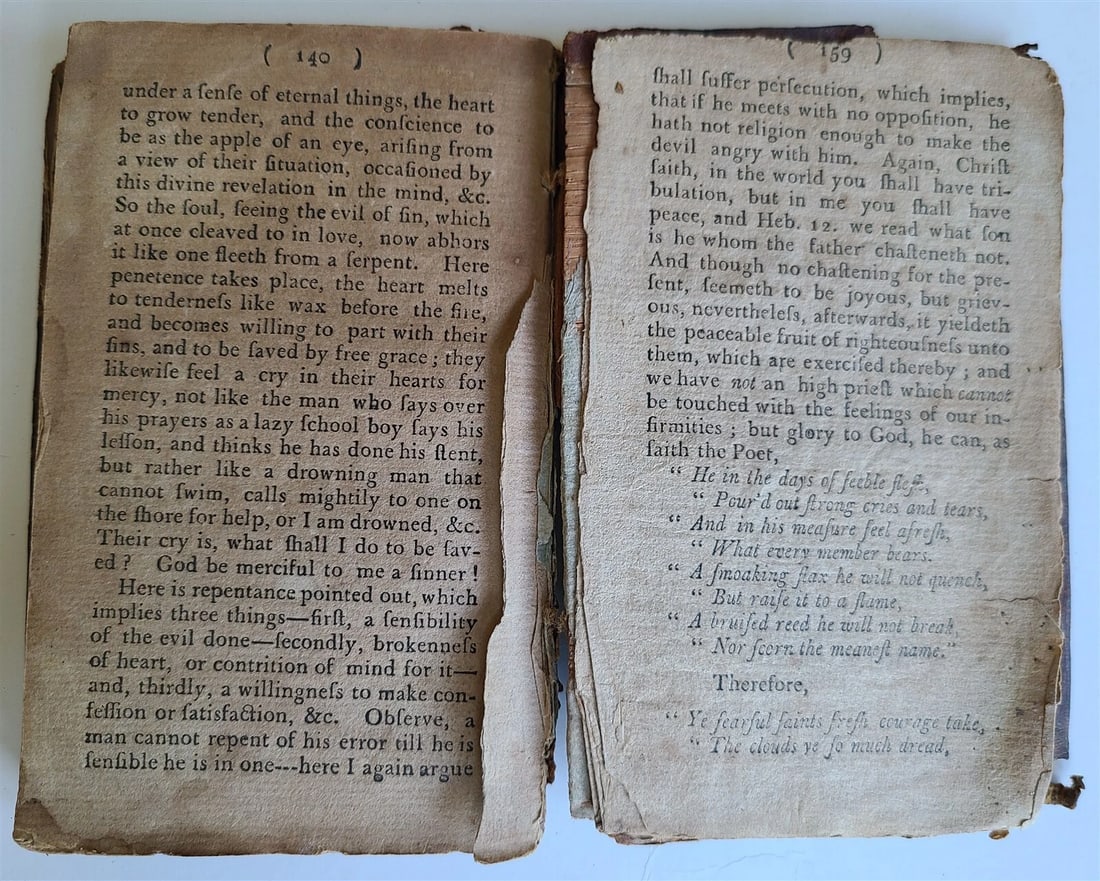 ( 140 )
under a ſenſe of eternal things, the heart
to grow tender, and the conſcience to
be as the apple of an eye, ariſing from
a view of their ſituation, occaſioned by
this divine revelation in the mind, &c.
So the ſoul, ſeeing the evil of ſin, which
at once cleaved to in love, now abhors
it like one fleeth from a ſerpent. Here
penetence takes place, the heart melts
to tenderneſs like wax before the fire,
and becomes willing to part with their
ſins, and to be ſaved by free grace; they
likewiſe feel a cry in their hearts for
mercy, not like the man who ſays over
his prayers as a lazy ſchool boy ſays his
leſſon, and thinks he has done his ſtent,
but rather like a drowning man that
cannot ſwim, calls mightily to one on
the ſhore for help, or I am drowned, &c.
Their cry is, what ſhall I do to be ſav-
ed? God be merciful to me a ſinner!
Here is repentance pointed out, which
implies three things—firſt, a ſenſibility
of the evil done—ſecondly, brokenneſs
of heart, or contrition of mind for it—
and, thirdly, a willingneſs to make con-
feſſion or ſatisfaction, &c. Obſerve, a
man cannot repent of his error till he is
ſenſible he is in one---here I again argue
( 159 )
ſhall ſuffer perſecution, which implies,
that if he meets with no oppoſition, he
hath not religion enough to make the
devil angry with him. Again, Chriſt
ſaith, in the world you ſhall have tri-
bulation, but in me you ſhall have
peace, and Heb. 12. we read what ſon
is he whom the father chaſteneth not.
And though no chaſtening for the pre-
ſent, ſeemeth to be joyous, but griev-
ous, nevertheleſs, afterwards, it yieldeth
the peaceable fruit of righteouſneſs unto
them, which are exerciſed thereby; and
we have not an high prieſt which cannot
be touched with the feelings of our in-
firmities; but glory to God, he can, as
ſaith the Poet,
“ He in the days of feeble fleſh,
“ Pour'd out ſtrong cries and tears,
“ And in his meaſure feel afreſh,
“ What every member bears.
“ A ſmoaking flax he will not quench,
“ But raiſe it to a flame,
“ A bruiſed reed he will not break,
“ Nor ſcorn the meaneſt name.”
Therefore,
“ Ye fearful ſaints freſh courage take,
“ The clouds ye ſo much dread,